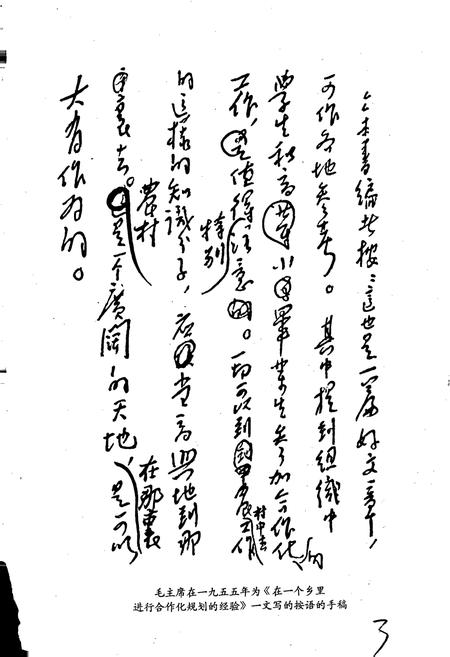 本書編者按：這也是一篇好文章，
可作各地参考。其中提到組織中
學生和高小畢業生参加合作化的
工作，值得特别注意。一切可以到農村中去工作
的這樣的知識分子，应當高興地到那
里去。農村是一个廣闊的天地，在那裏是可以
大有作为的。
毛主席在一九五五年为《在一个乡里
进行合作化规划的经验》一文写的按语的手稿
3